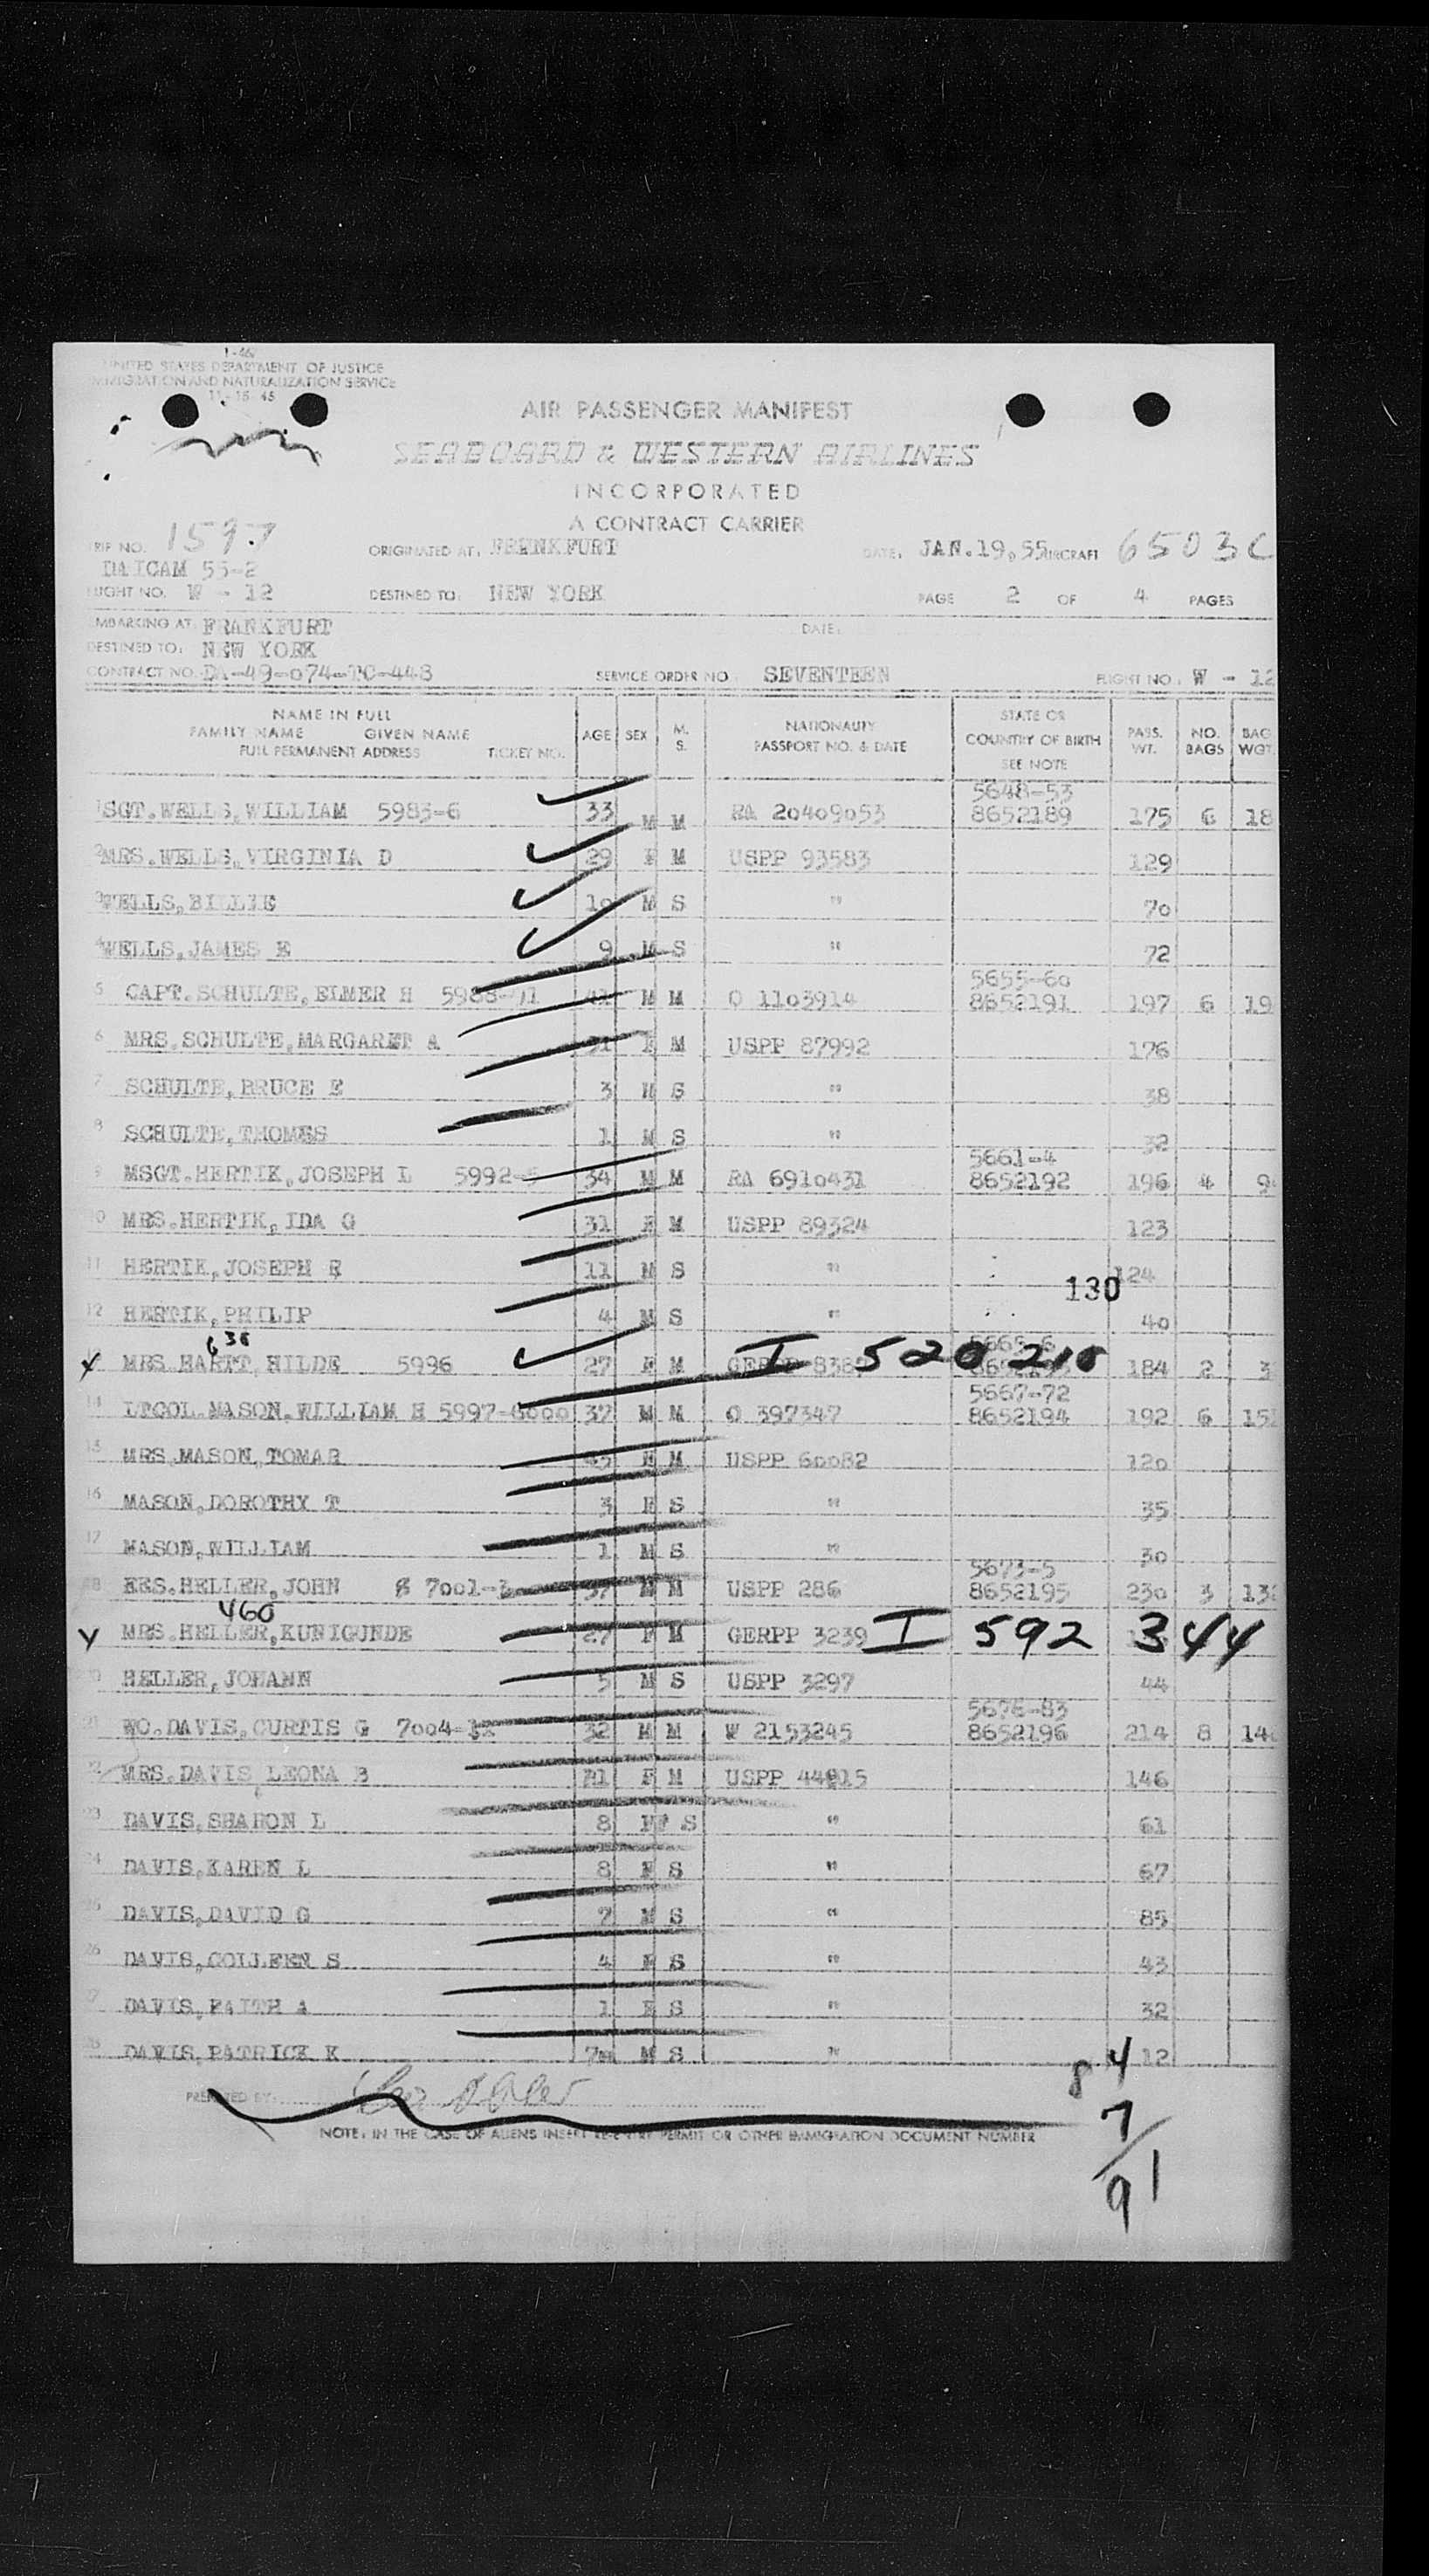 1-466
UNITED STATES DEPARTMENT OF JUSTICE
IMMIGRATION AND NATURALIZATION SERVICE
11-15 45
AIR PASSENGER MANIFEST
SEABOARD & WESTERN AIRLINES
INCORPORATED
A CONTRACT CARRIER
TRIP NO. 1597 ORIGINATED AT: FRANKFURT DATE: JAN.19,55 AIRCRAFT 6503C
DAICAM 55-2
FLIGHT NO. W - 12 DESTINED TO: NEW YORK PAGE 2 OF 4 PAGES
EMBARKING AT FRANKFURT DATE:
DESTINED TO: NEW YORK
CONTRACT NO. DA-49-074-TC-448 SERVICE ORDER NO. SEVENTEEN FLIGHT NO. W - 12
NAME IN FULL FAMILY NAME GIVEN NAME FULL PERMANENT ADDRESS TICKET NO. AGE SEX M. S. NATIONALITY PASSPORT NO. & DATE STATE OR COUNTRY OF BIRTH SEE NOTE PASS. WT. NO. BAGS BAG WGT.
5648-53
1 SGT.WELLS,WILLIAM 5983-6 33 M M RA 20409053 8652189 175 6 18
2 MRS.WELLS,VIRGINIA D 29 F M USPP 93583 129
3 WELLS,BILLIE 10 M S " 70
4 WELLS,JAMES E 9 M S " 72
5655-60
5 CAPT.SCHULTE,ELMER H 5988-91 41 M M O 1103914 8652191 197 6 19
6 MRS.SCHULTE,MARGARET A 31 F M USPP 87992 176
7 SCHULTE,BRUCE E 3 M S " 38
8 SCHULTE,THOMAS 1 M S " 32
5661-4
9 MSGT.HERTIK,JOSEPH L 5992-5 34 M M RA 6910431 8652192 196 4 9
10 MRS.HERTIK,IDA G 31 F M USPP 89324 123
11 HERTIK,JOSEPH R 11 M S " 124
130
12 HERTIK,PHILIP 4 M S " 40
5665-6
x MRS.HARTT,HILDE 5996 27 F M GERPP I 520 210 184 2 3
5667-72
14 LTCOL.MASON,WILLIAM H 5997-6000 37 M M O 397347 8652194 192 6 15
15 MRS.MASON,TOMAR F M USPP 60082 120
16 MASON,DOROTHY T 3 F S " 35
17 MASON,WILLIAM 1 M S " 30
5673-5
18 HELLER,JOHN 7001-3 37 M M USPP 286 8652195 230 3 13
460
MRS.HELLER,KUNIGUNDE 27 F M GERPP 3239 I 592 344
20 HELLER,JOHANN 5 M S USPP 3297 44
5676-83
21 WO.DAVIS,CURTIS G 7004- 32 M M W 2153245 8652196 214 8 14
22 MRS.DAVIS LEONA B F M USPP 44815 146
23 DAVIS,SHARON L 8 F S " 61
24 DAVIS,KAREN L 8 F S " 67
25 DAVIS,DAVID G 7 M S " 85
26 DAVIS,COLLEEN S 4 F S " 43
27 DAVIS,FAITH A 1 F S " 32
28 DAVIS,PATRICK K 7m M S " 12
PREPARED BY:
NOTE: IN THE CASE OF ALIENS INSERT RE-ENTRY PERMIT OR OTHER IMMIGRATION DOCUMENT NUMBER
8 4
7
91